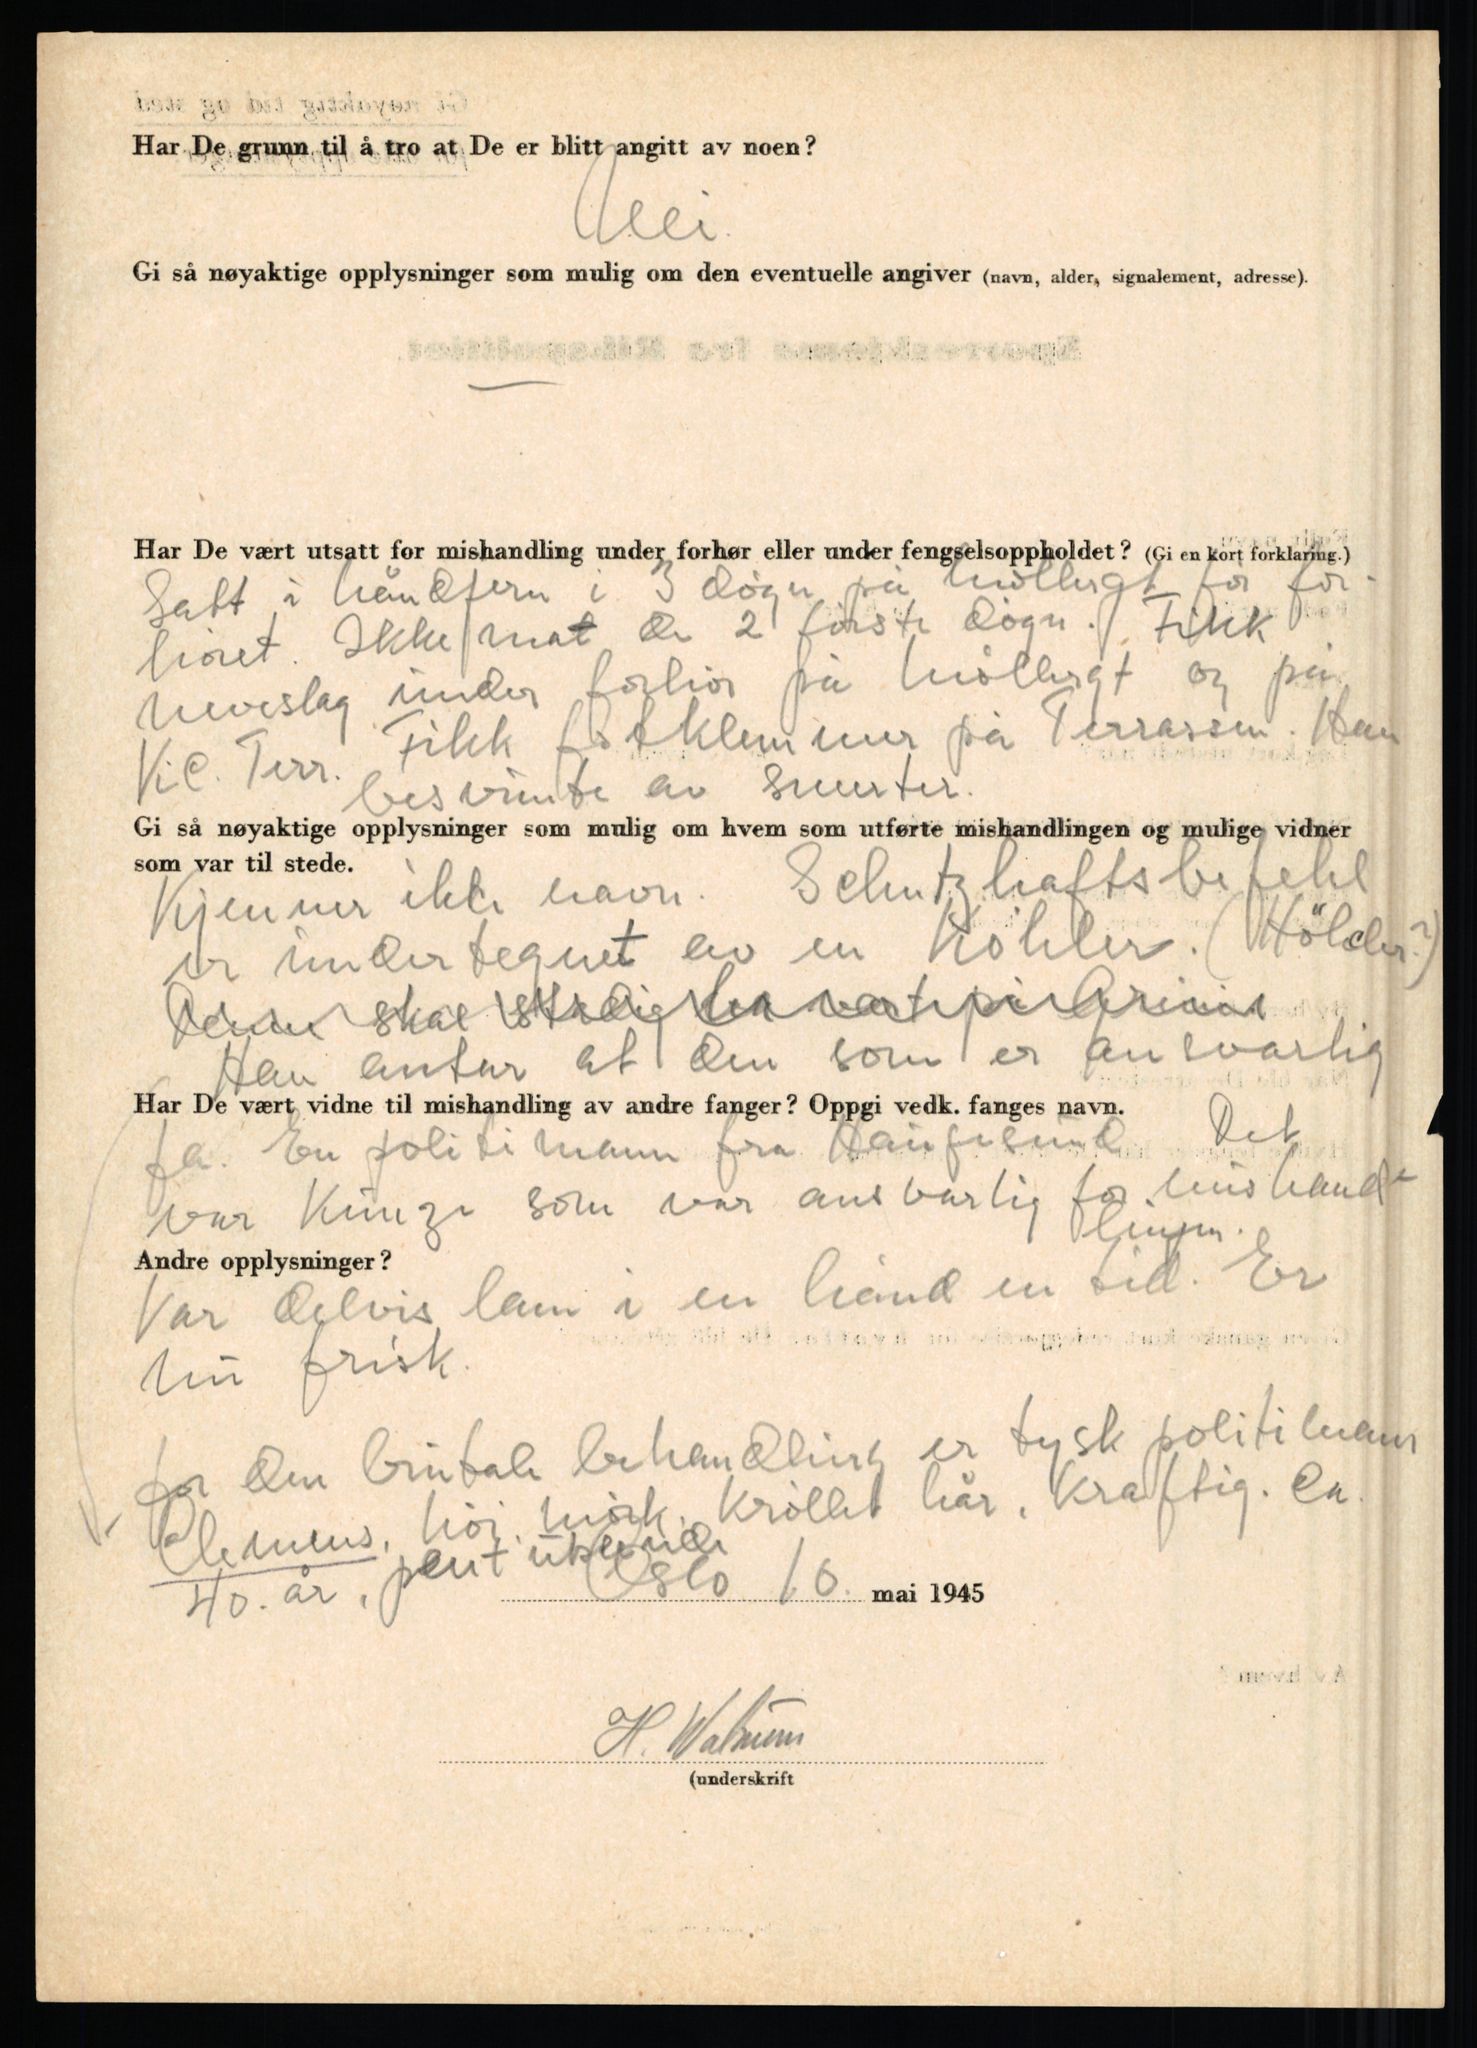 Har De grunn til å tro at De er blitt angitt av noen?
Nei.
Gi så nøyaktige opplysninger som mulig om den eventuelle angiver (navn, alder, signalement, adresse).
—
Har De vært utsatt for mishandling under forhør eller under fengselsoppholdet? (Gi en kort forklaring.)
Satt i håndjern i 3 døgn på Møllergt for for-
høret. Ikke mat de 2 første døgn. Fikk
neveslag under forhør på Møllergt og på
V. Terr. Fikk fotklemmer på Terrassen. Han
besvimte av smerter.
Gi så nøyaktige opplysninger som mulig om hvem som utførte mishandlingen og mulige vidner
som var til stede.
Kjenner ikke navn. Schutzhaftsbefehl
er undertegnet av en Köhler. (Hölder?)
Denne skal stadig ha vært på Grini
Han antar at den som er ansvarlig
Har De vært vidne til mishandling av andre fanger? Oppgi vedk. fanges navn.
Ja. En politimann fra Haugesund Det
var Kunze som var ansvarlig for mishand-
lingen.
Andre opplysninger?
Var delvis lam i en hånd en tid. Er
nu frisk.
for den brutale behandling er tysk politimann
Clemens, høi, mørk, krøllet hår, kraftig. Ca.
40. år, pent utseende
Oslo 16. mai 1945
H. Walnum
(underskrift